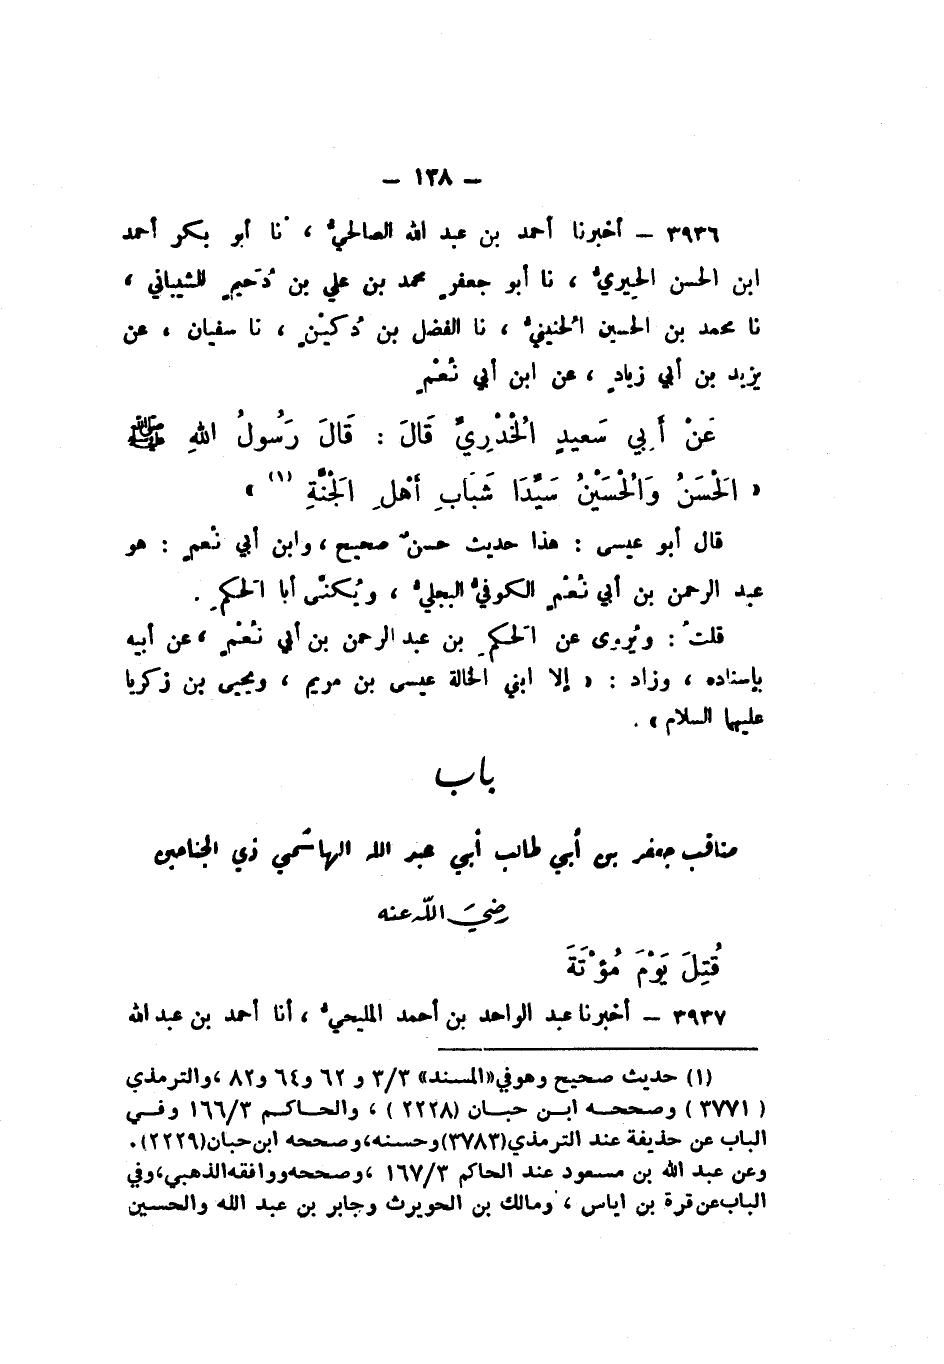 — ١٣٨ —
٣٩٣٦ — أخبرنا أحمد بن عبد الله الصالحيُّ ، نا أبو بكر أحمد
ابن الحسن الحِيريُّ ، نا أبو جعفرٍ محمد بن علي بن دُحَيمٍ الشيباني ،
نا محمد بن الحسين الحُنينيُّ ، نا الفضل بن دُكيْنٍ ، نا سفيان ، عن
يزيد بن أبي زيادٍ ، عن ابن أبي نُعْمٍ
عَنْ أَبِي سَعيدٍ الْخُدْرِيِّ قَالَ : قَالَ رَسُولُ اللهِ ﷺ
« الْحَسَنُ وَالْحُسَيْنُ سَيِّدَا شَبَابِ أَهْلِ الجَنَّةِ (١) »
قال أبو عيسى : هذا حديث حسنٌ صحيح ، وابن أبي نُعمٍ : هو
عبد الرحمن بن أبي نُعْمٍ الكوفيُّ البجليُّ ، ويُكنَّى أبا الحَكمِ .
قلتُ : ويُروى عن الحَكمِ بن عبد الرحمن بن أبي نُعْمٍ ، عن أبيه
بإسناده ، وزاد : « إلا ابني الخالة عيسى بن مريم ، ويحيى بن زكريا
عليهما السلام » .
باب
مناقب جعفر بن أبي طالب أبي عبد الله الهاشمي ذي الجناحين
رضيَ اللّه عنه
قُتِلَ يَوْمَ مُؤْتَةَ
٣٩٣٧ — أخبرنا عبد الواحد بن أحمد المليحيُّ ، أنا أحمد بن عبد الله
(١) حديث صحيح وهو في «المسند» ٣/٣ و ٦٢ و٦٤ و٨٢ ، والترمذي
( ٣٧٧١ ) وصححه ابن حبان (٢٢٢٨ ) ، والحاكم ١٦٦/٣ وفي
الباب عن حذيفة عند الترمذي (٣٧٨٣) وحسنه، وصححه ابن حبان (٢٢٢٩).
وعن عبد الله بن مسعود عند الحاكم ١٦٧/٣ ، وصححه ووافقه الذهبي، وفي
الباب عن قرة بن اياس ، ومالك بن الحويرث وجابر بن عبد الله والحسين